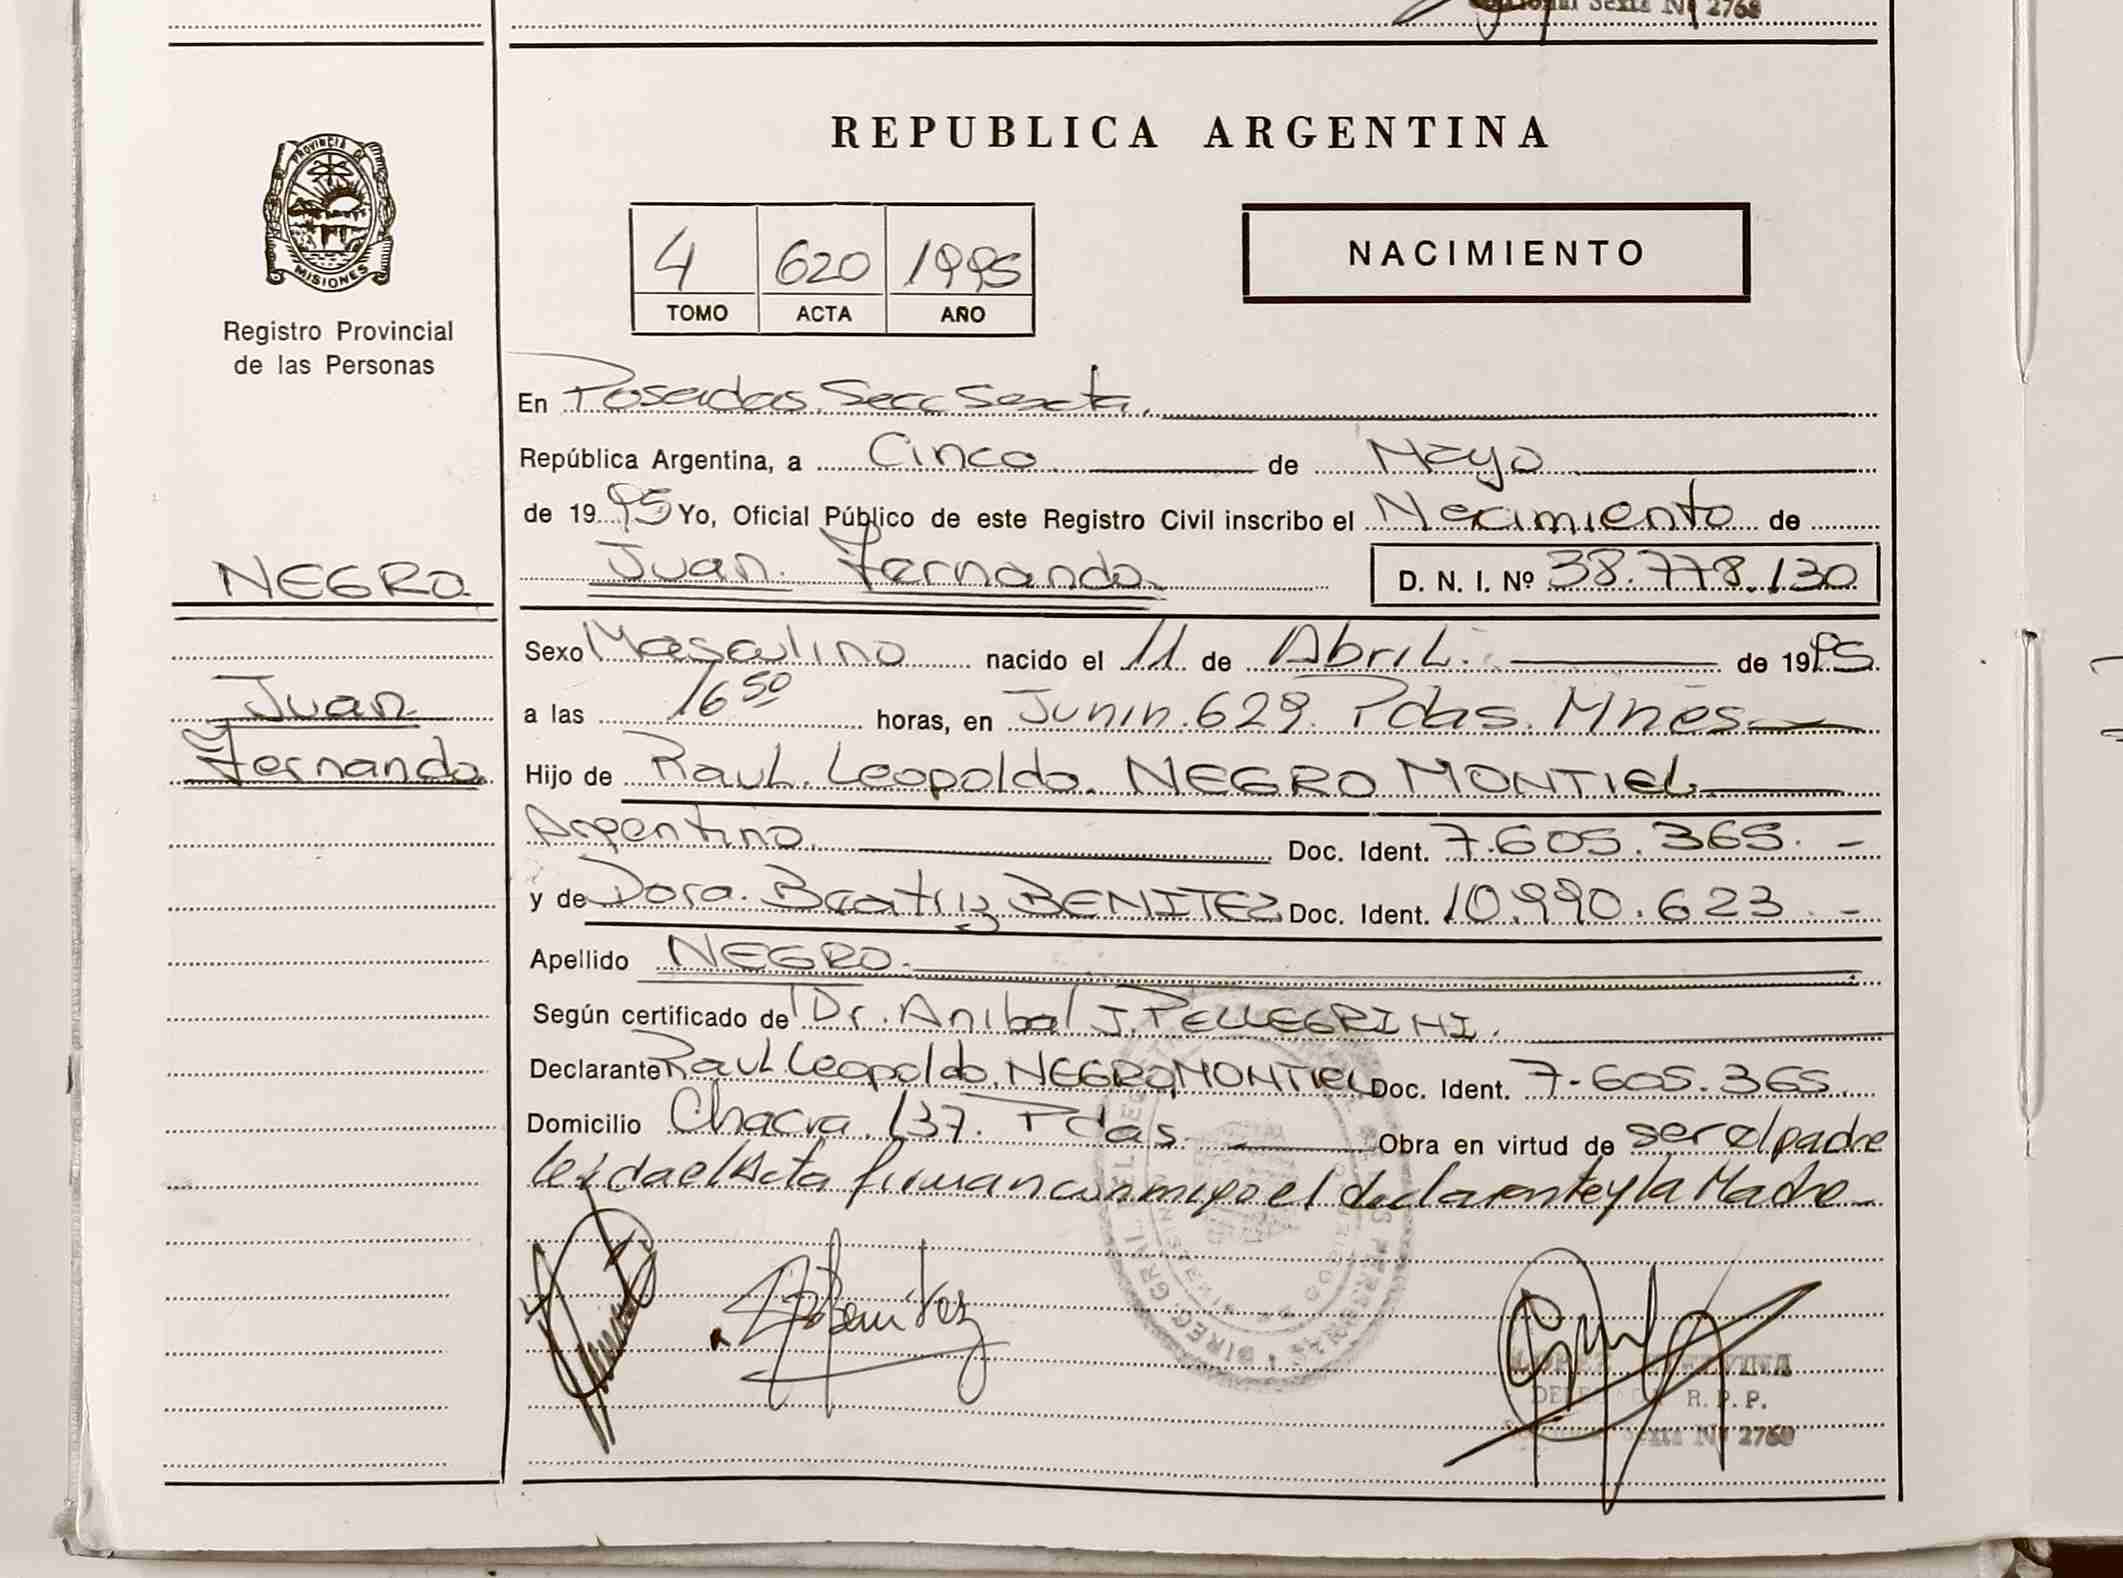 Sexta Nº 2768
REPUBLICA ARGENTINA
PROVINCIA DE
MISIONES
Registro Provincial
de las Personas
4 620 1995
TOMO ACTA AÑO
NACIMIENTO
En Posadas. Secc Sexta.
República Argentina, a Cinco de Mayo
de 1995 Yo, Oficial Público de este Registro Civil inscribo el Nacimiento de
NEGRO
Juan Fernando D. N. I. Nº 38.778.130
Sexo Masculino nacido el 11 de Abril. de 1995.
Juan
Fernando
a las 16 50 horas, en Junin. 629. Pdas. Mnes
Hijo de Raul. Leopoldo. NEGRO MONTIEL
Argentino. Doc. Ident. 7.605.365. -
y de Dora. Beatriz BENITEZ Doc. Ident. 10.990.623. -
Apellido NEGRO.
Según certificado de Dr. Anibal J. PELLEGRINI.
Declarante Raul Leopoldo. NEGRO MONTIEL Doc. Ident. 7.605.365.
Domicilio Chacra. 137. Pdas. Obra en virtud de ser el padre
leida el Acta firman conmigo el declarante y la Madre
Benitez
R. P. P.
Sexta Nº 2768